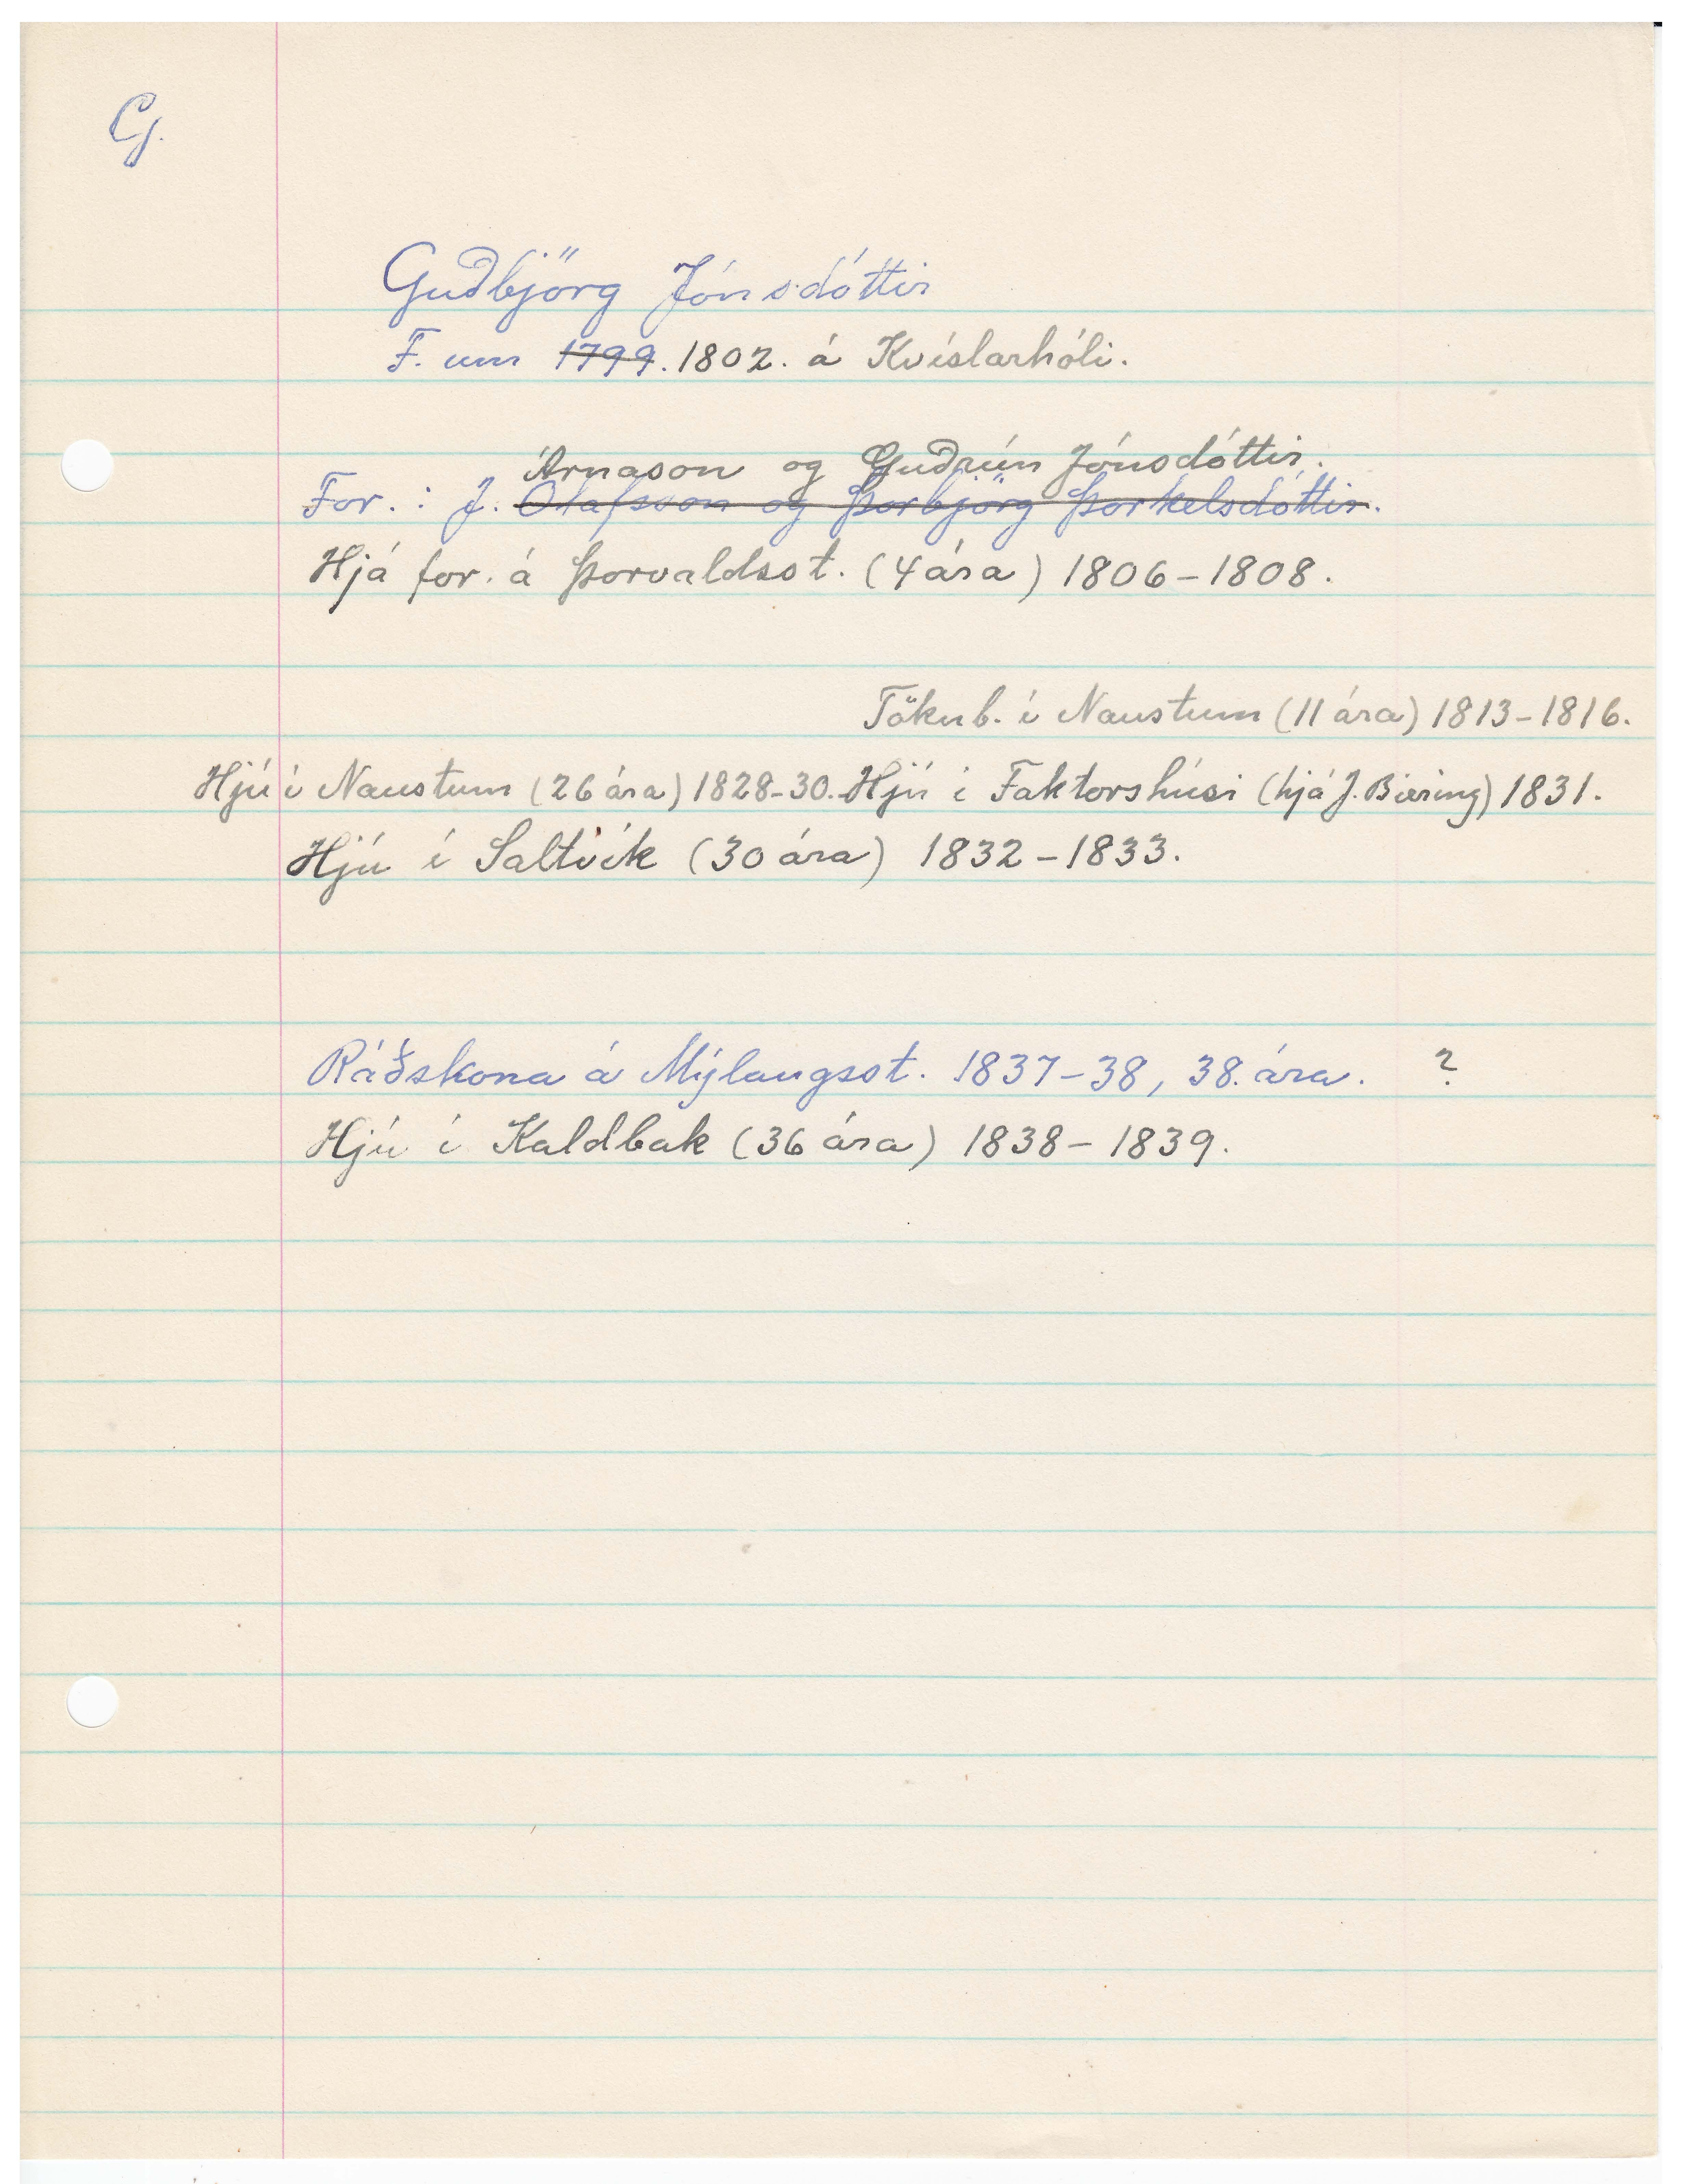 G.
Guðbjörg Jónsdóttir
F. um 1799. 1802. á Kvíslarhóli.
Árnason og Guðrún Jónsdóttir.
For. : J. Ólafsson og Þorbjörg Þorkelsdóttir.
Hjá for. á Þorvaldsst. (4 ára) 1806-1808.
Tökub. í Naustum (11 ára) 1813-1816.
Hjú í Naustum (26 ára) 1828-30. Hjú í Faktorshúsi (hjá J. Biering) 1831.
Hjú í Saltvík (30 ára) 1832-1833.
Ráðskona á Mýlaugsst. 1837-38, 38. ára. ?
Hjú í Kaldbak (36 ára) 1838-1839.